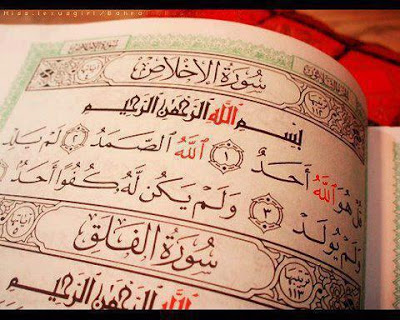 سُورَةُ الإِخْلَاصِ
بِسْمِ اللَّهِ الرَّحْمَٰنِ الرَّحِيمِ
قُلْ هُوَ اللَّهُ أَحَدٌ ١ اللَّهُ الصَّمَدُ ٢ لَمْ يَلِدْ
وَلَمْ يُولَدْ ٣ وَلَمْ يَكُن لَّهُ كُفُوًا أَحَدٌ
سُورَةُ الْفَلَقِ
ترتيبها ١١٣
اللَّهِ الرَّحْمَٰنِ الرَّحِيمِ